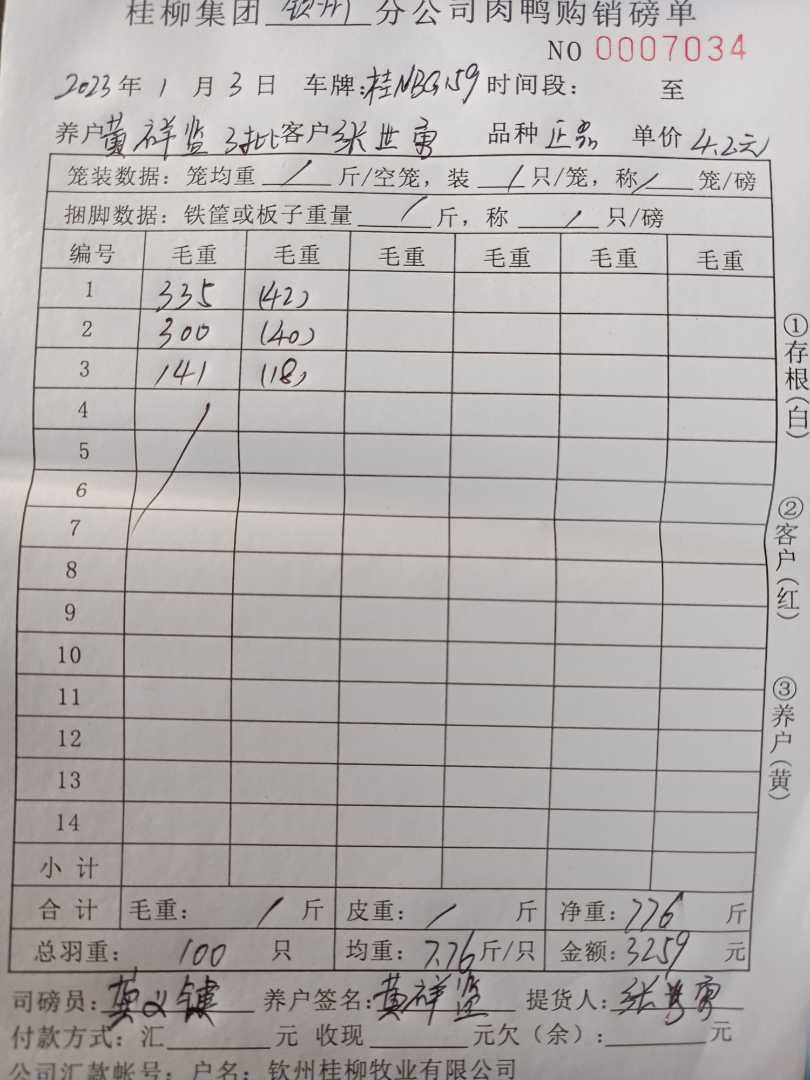 桂柳集团 钦州 分公司肉鸭购销磅单
NO 0007034
2023年 1 月 3 日 车牌:桂NBG159 时间段: 至
养户黄祥监 3批 客户张世 品种 正品 单价 4.2元
笼装数据: 笼均重 / 斤/空笼, 装 / 只/笼, 称 / 笼/磅
捆脚数据: 铁筐或板子重量 / 斤, 称 / 只/磅
编号 毛重 毛重 毛重 毛重 毛重 毛重
1 335 (42)
2 300 (40)
3 141 (18)
4
5
6
7
8
9
10
11
12
13
14
小 计
合 计 毛重: / 斤 皮重: / 斤 净重: 776 斤
总羽重: 100 只 均重: 7.76 斤/只 金额: 3259 元
司磅员: 键 养户签名: 黄祥监 提货人: 张
付款方式: 汇 元 收现 元欠(余): 元
公司汇款帐号: 户名: 钦州桂柳牧业有限公司
①存根(白)
②客户(红)
③养户(黄)